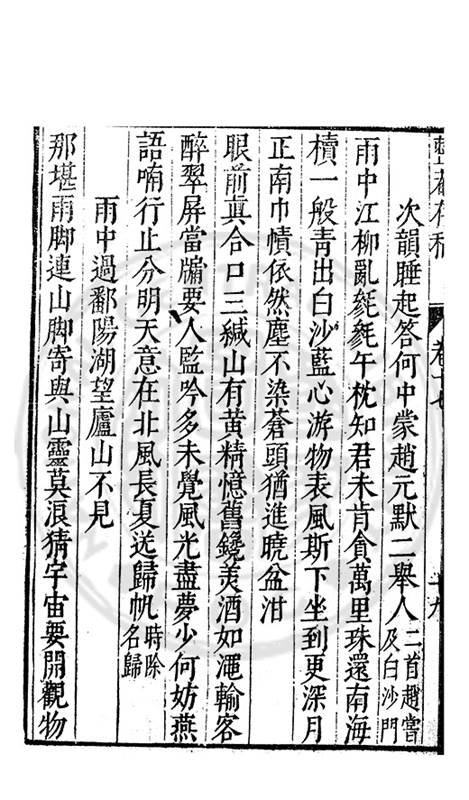 次韻睡起答何中蒙趙元默二舉人二首趙嘗及白沙門
雨中江柳亂毿毿午枕知君未肯貪萬里珠還南海
櫝一般靑出白沙藍心游物表風斯下坐到更深月
正南巾幘依然塵不染蒼頭猶進曉盆泔
眼前眞合口三緘山有黃精憶舊鑱羡酒如澠輸客
醉翠屏當牖要人監吟多未覺風光盡夢少何妨燕
語喃行止分明天意在北風長夏送歸帆時除名歸
雨中過鄱陽湖望廬山不見
那堪雨脚連山脚寄與山靈莫浪猜宇宙要開觀物